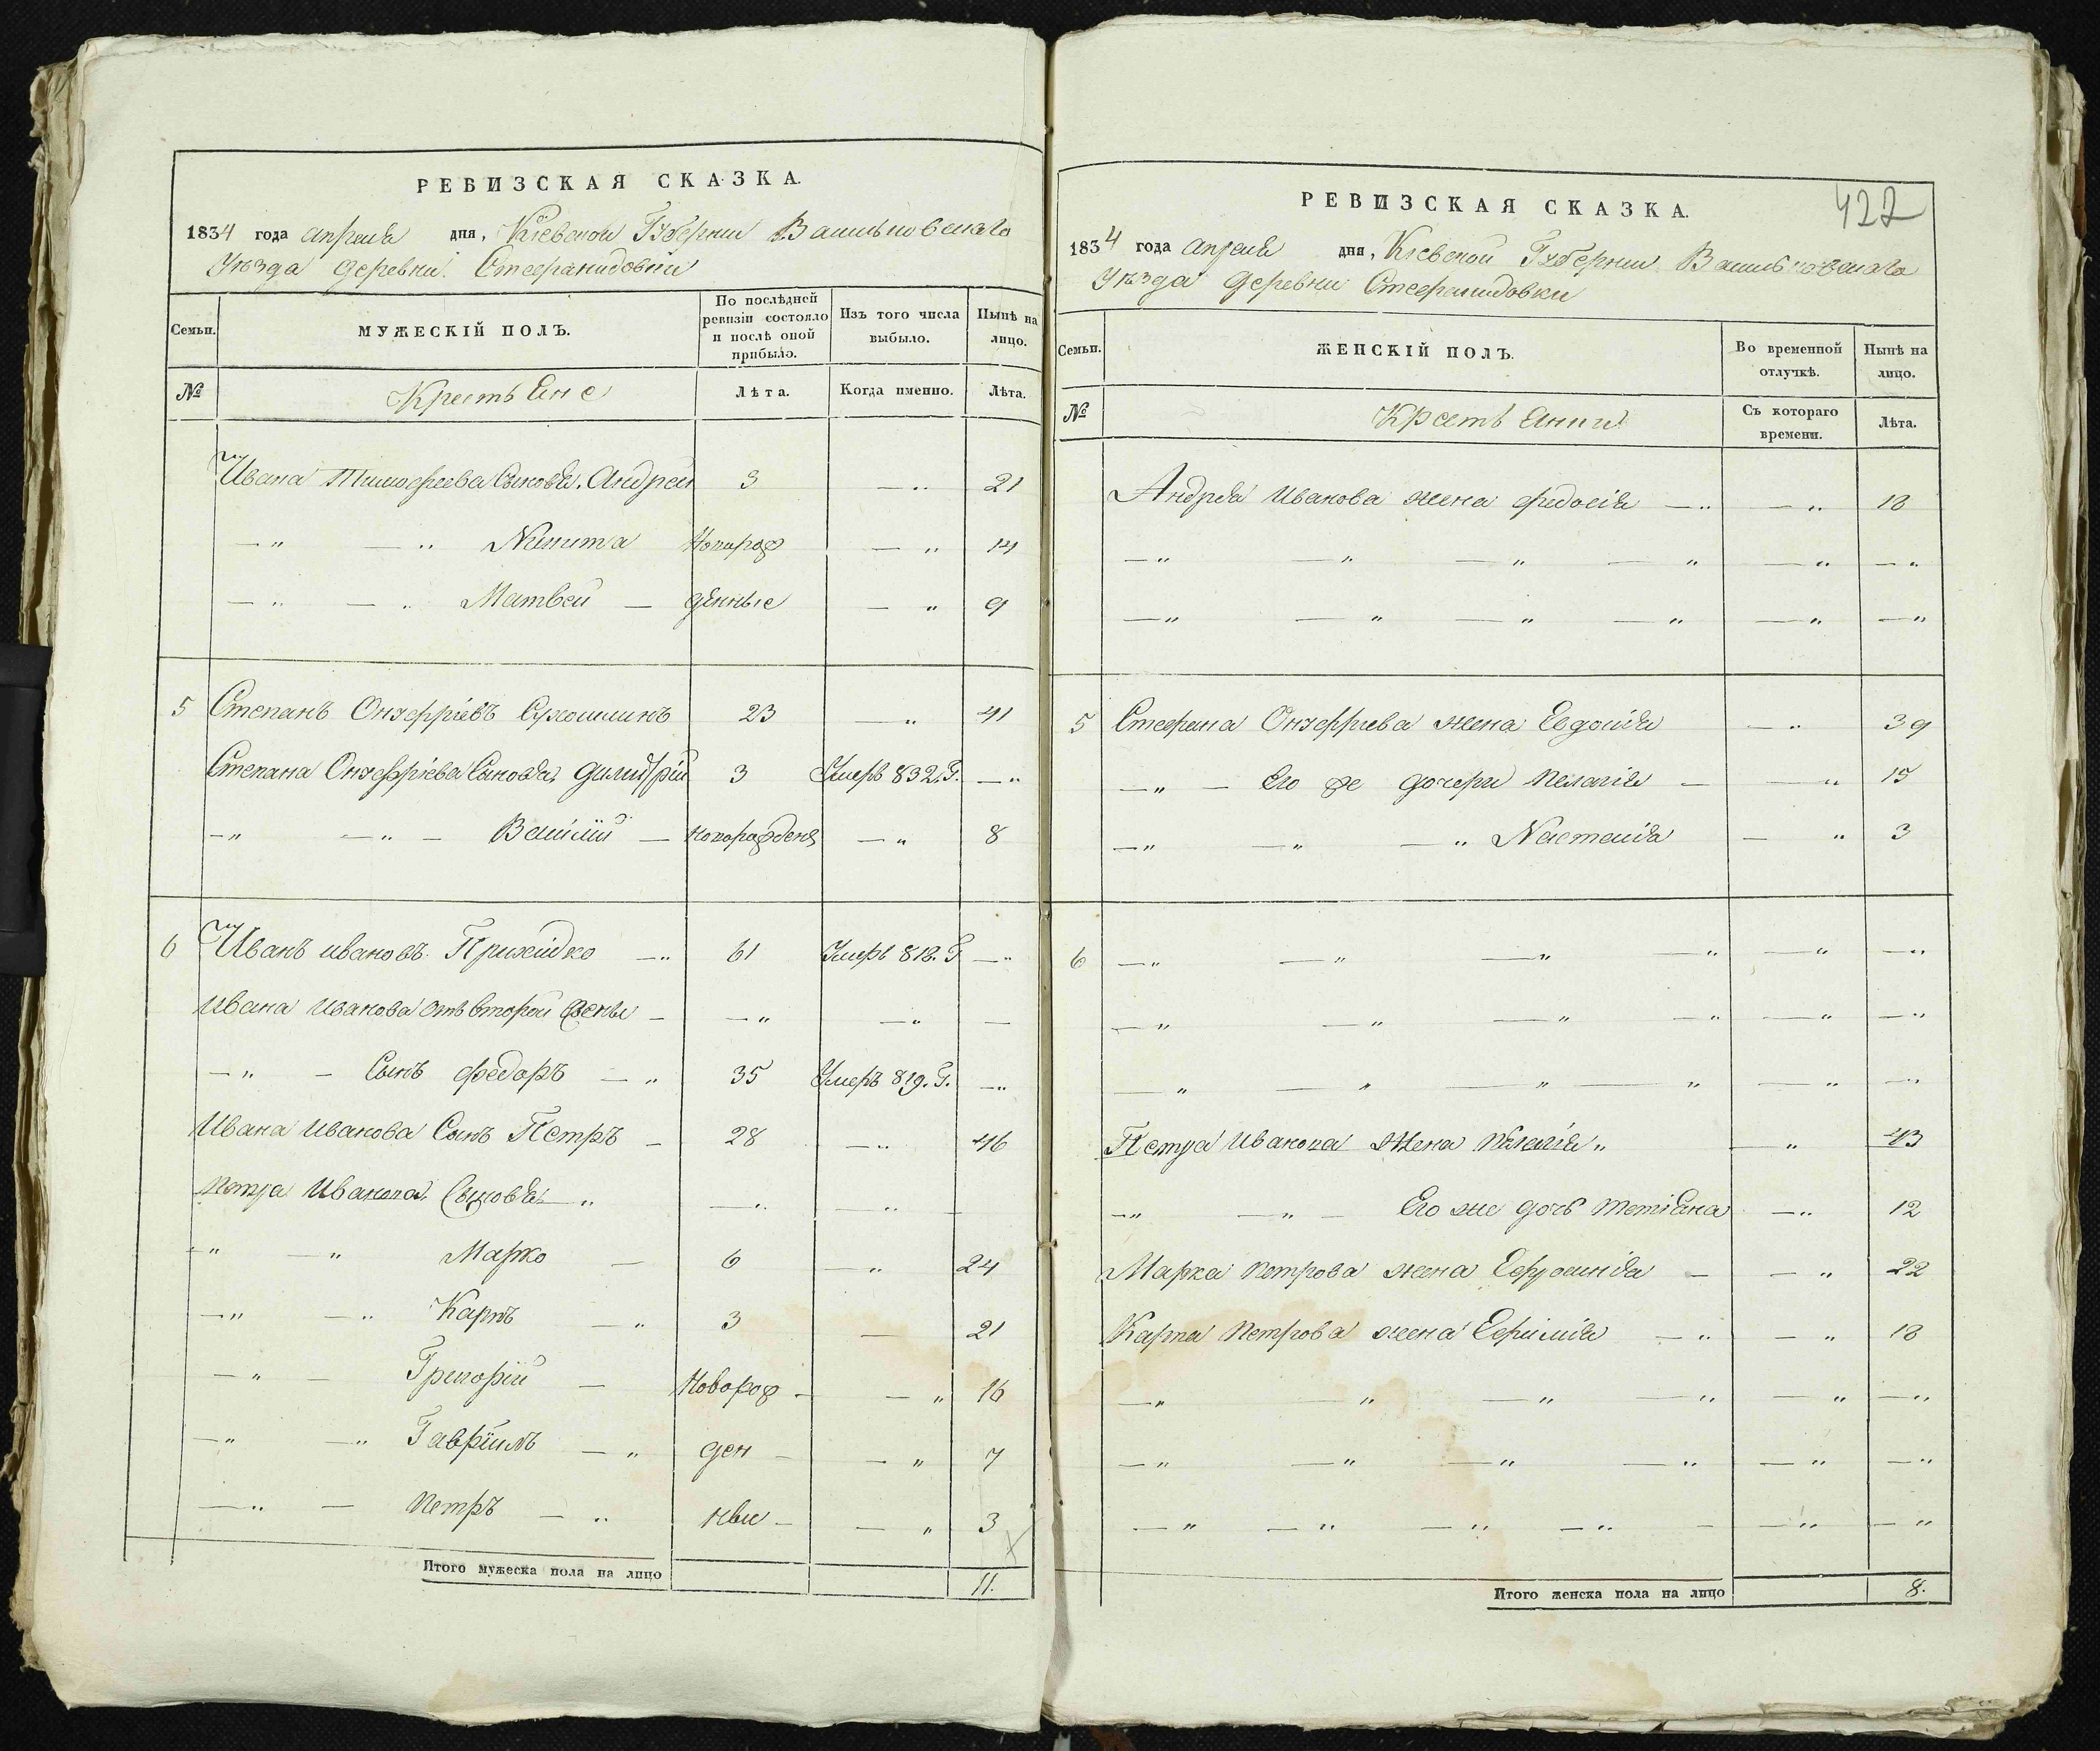 РЕВИЗСКАЯ СКАЗКА.
1834 года апреля дня, Кіевской Губерніи Васильковскаго
Уѣзда деревни Стефанидовки
Семьи. МУЖЕСКІЙ ПОЛЪ. По послѣдней ревизіи состояло и послѣ оной прибыло. Изъ того числа выбыло. Нынѣ на лицо.
№ Крестьяне Лѣта. Когда именно. Лѣта.
Ивана Тимофеева Сыновя, Андрей 3 —„ 21
—„ —„ Никита Новорож —„ 14
—„ —„ Матвей — денные —„ 9
5 Степанъ Онуфріевъ 23 —„ 41
Степана Онуфріева Сыновя, Димитрій 3 Умеръ 832. Г. —„
—„ —„ — Василій — новорожденъ —„ 8
6 Иванъ ивановъ —„ 61 Умеръ 818. Г —„
Ивана Иванова отъ второй жены — —„ —„ —
—„ — Сынъ федоръ —„ 35 Умеръ 819. Г. —„
Ивана Иванова Сынъ Петръ — 28 —„ 46
Петра Иванова, Сыновя —„ —„ —„ —
—„ —„ Марко — 6 —„ 24
—„ —„ Карпъ —„ 3 — 21
—„ — Григорій — Новорож — —„ 16
—„ —„ Гавріилъ —„ ден — —„ 7
—„ — Петръ —„ ныи — —„ 3
Итого мужеска пола на лицо 11.
422
РЕВИЗСКАЯ СКАЗКА.
1834 года апреля дня, Кіевской Губерніи Васильковскаго
Уѣзда деревни Стефанидовки
Семьи. ЖЕНСКІЙ ПОЛЪ. Во временной отлучкѣ. Нынѣ на лицо.
№ Крестьянки Съ котораго времени. Лѣта.
Андрея Иванова жена федосія —„ —„ 18
—„ —„ —„ —„ —„ —„
—„ —„ —„ —„ —„ —„
5 Стефана Онуфріева жена Евдокія —„ 39
—„ — Его же дочери Пелагія — —„ 15
—„ —„ —„ Настасія —„ 3
6 —„ —„ —„ —„ —„ —„
—„ —„ —„ —„ —„ —„
—„ —„ —„ —„ —„ —„
Петра Иванова Жена Пелагія „ —„ 43
—„ —„ — Его же дочь Тетіяна —„ 12
Марка Петрова жена Ефросинія — —„ 22
Карпа Петрова жена Ефимія —„ —„ 18
—„ —„ —„ —„ —„ —„
—„ —„ —„ —„ —„ —„
—„ —„ —„ —„ — —„ —„
Итого женска пола на лицо 8.